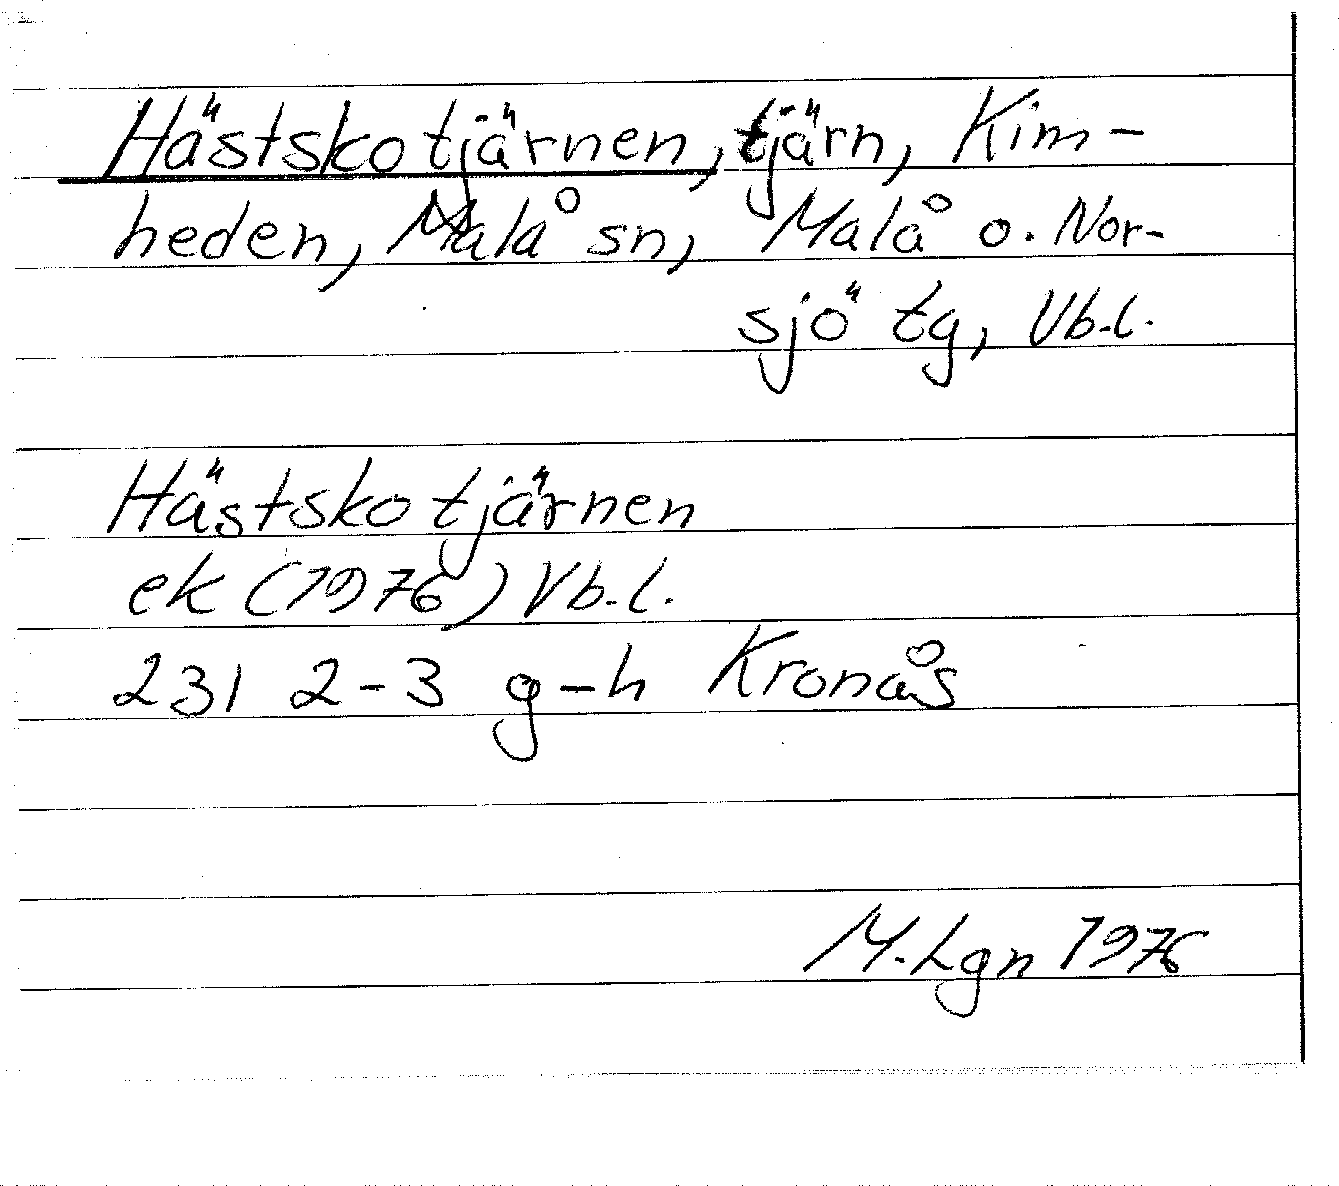 Hästskotjärnen, tjärn, Kim-
heden, Malå sn, Malå o. Nor-
sjö tg, Vb.l.
Hästskotjärnen
ek (1976) Vb.l.
231 2-3 g-h Kronås
M.Lgn 1976